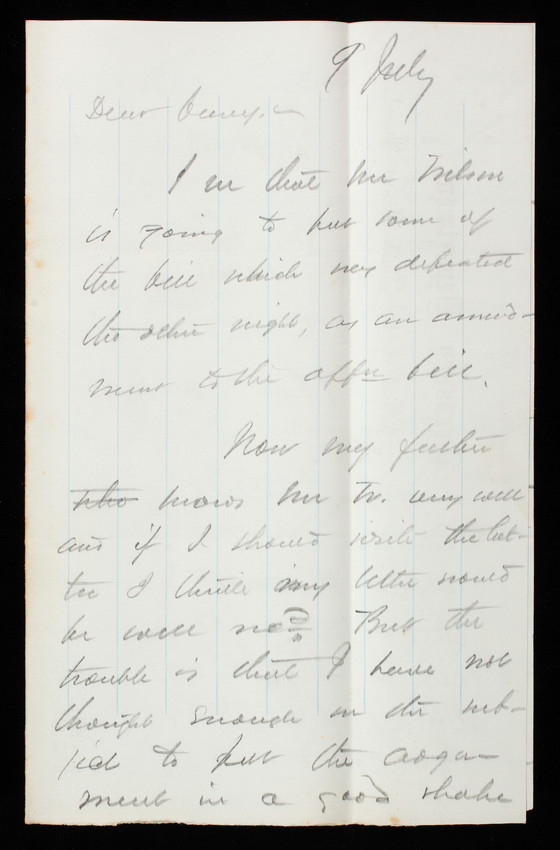 9 July
Dear Casey. —
I see that Mr Wilson
is going to put some of
the bill which was defeated
the other night, as an amend-
ment to the appn bill.
Now my father
who knows Mr W. very well
and if I should write the let-
ter I think my letter would
be well recd. But the
trouble is that I have not
thought enough on the sub-
ject to put the argu-
ment in a good shape